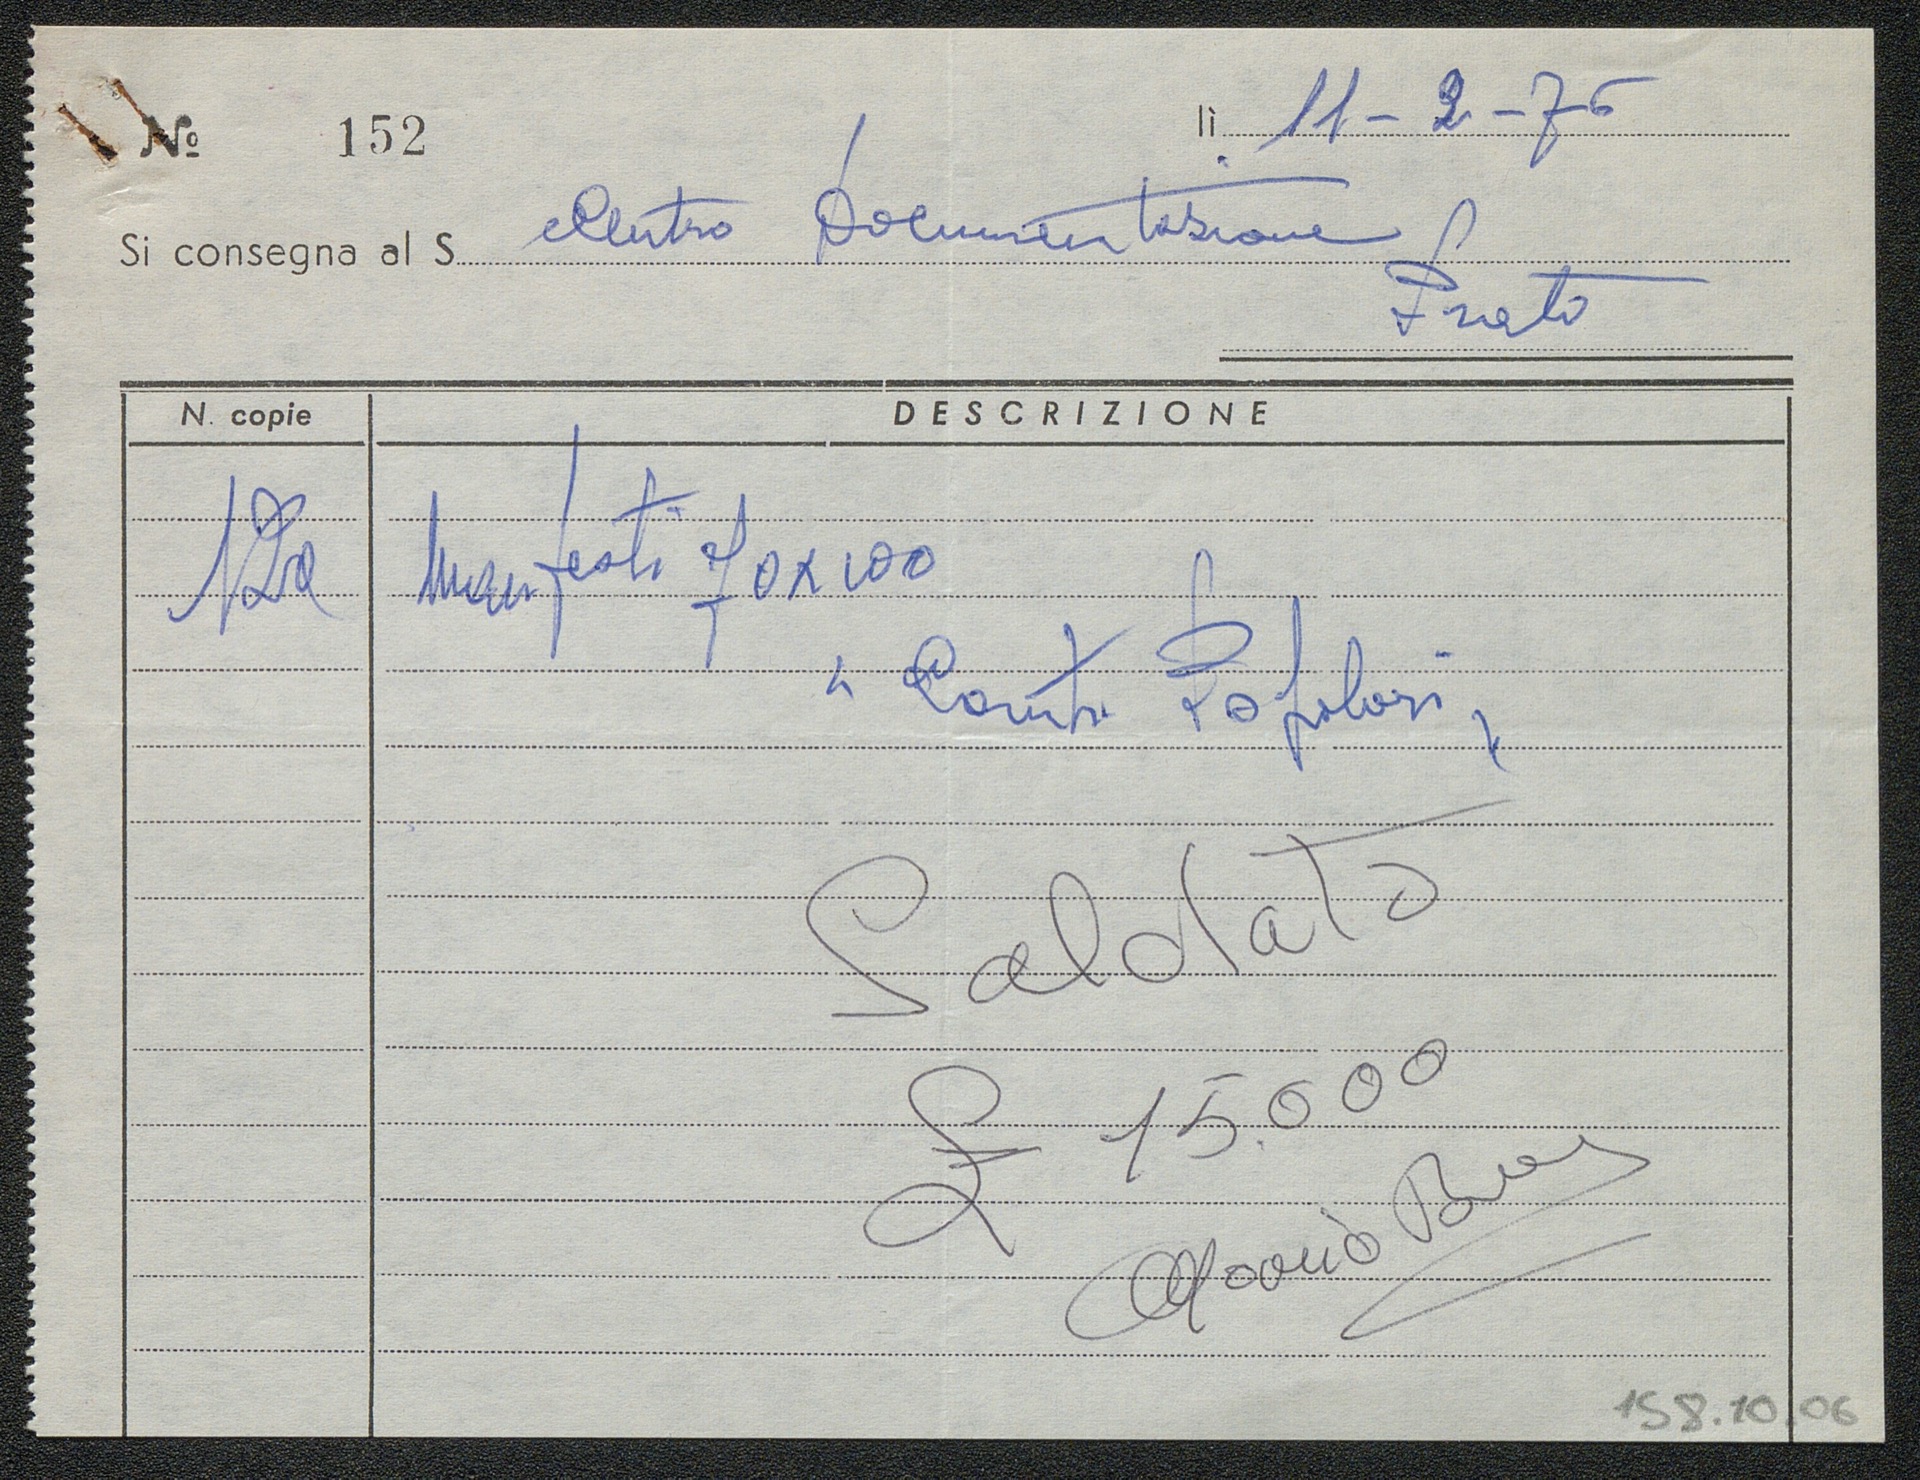 № 152
lì 11-2-76
Si consegna al S. Centro Documentazione
Prato
N. copie DESCRIZIONE
120 Manifesti 70x100
" Canti Popolari "
Saldato
£ 15.000
158.10.06